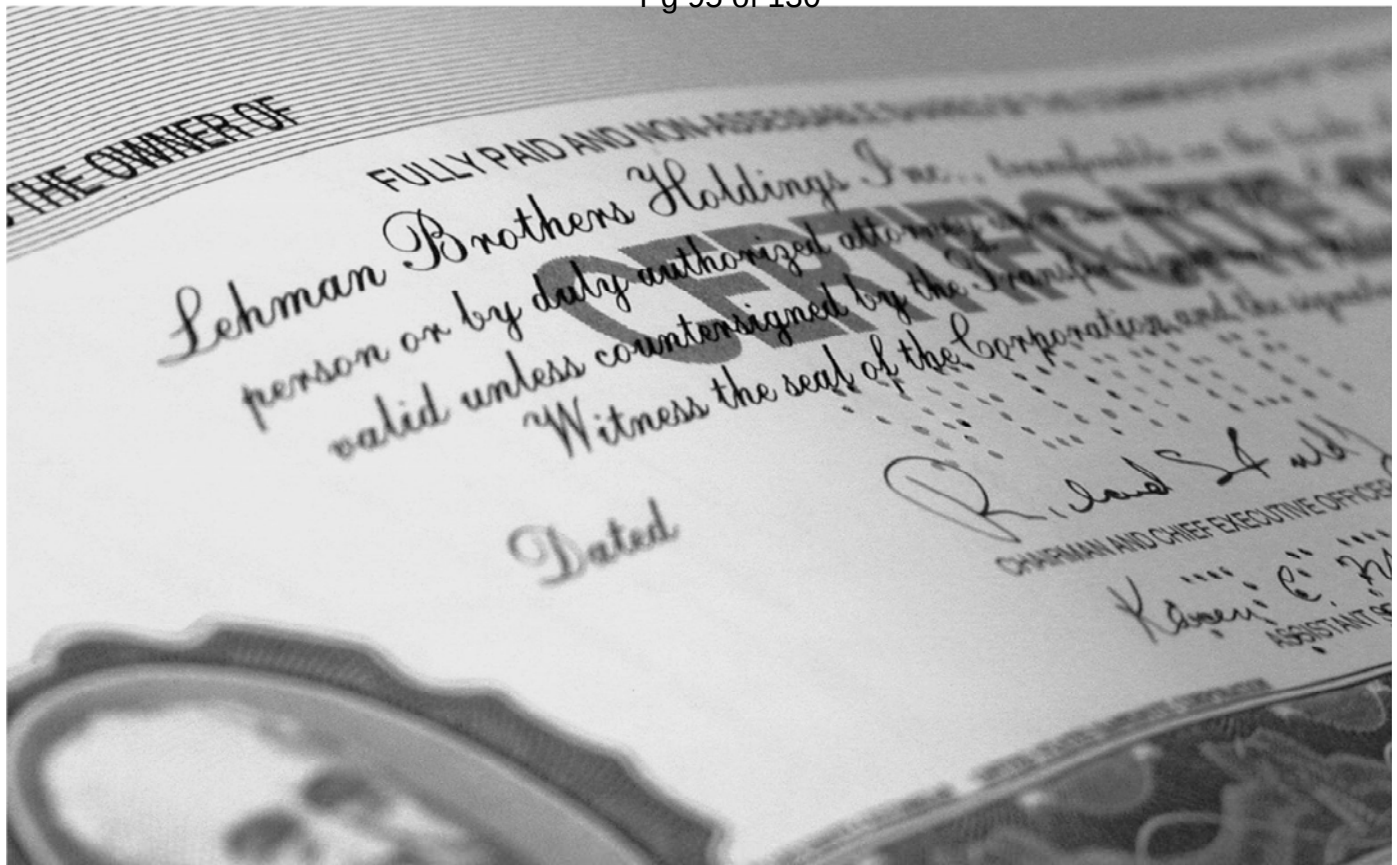 Pg 95 of 130
THE OWNER OF
FULLY PAID AND NON-ASSESSABLE SHARES OF THE COMMON
Lehman Brothers Holdings Inc., transferable on the books
CERTIFICATE
person or by duly authorized attorney, upon
valid unless countersigned by the Transfer
Witness the seal of the Corporation and the signatures
Dated
Richard S Fuld
CHAIRMAN AND CHIEF EXECUTIVE OFFICER
Karen C.
ASSISTANT